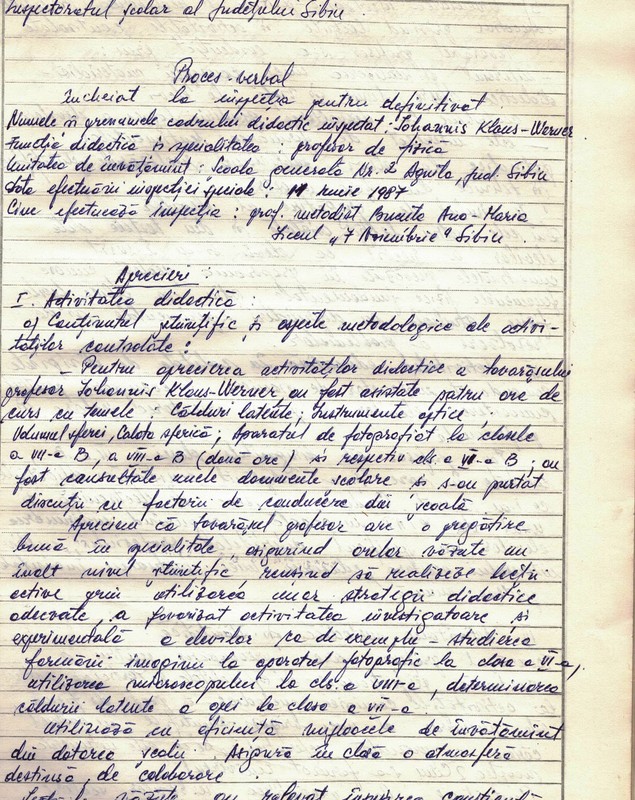 Inspectoratul școlar al Județului Sibiu.
Proces-verbal
încheiat la inspecția pentru definitivat
Numele și prenumele cadrului didactic inspectat: Iohannis Klaus-Werner
Funcția didactică și specialitatea: profesor de fizică
Unitatea de învățămînt: Școala generală Nr. 2 Agnita, jud. Sibiu
Data efectuării inspecției speciale: 11 iunie 1987
Cine efectuează inspecția: prof. metodist Ana-Maria
Liceul "7 Noiembrie" Sibiu.
Aprecieri
I. Activitatea didactică:
a) Conținutul științific și aspecte metodologice ale activi-
tăților controlate:
- Pentru aprecierea activităților didactice a tovarășului
profesor Iohannis Klaus-Werner, au fost asistate patru ore de
curs cu temele: Călduri latente; Instrumente optice;
Volumul sferei, Calota sferică; Aparatul de fotografiat la clasele
a VII-a B, a VIII-a B (două ore) și respectiv cls. a VI-a B; au
fost consultate unele documente școlare și s-au purtat
discuții cu factorii de conducere din școală
Apreciem că tovarășul profesor are o pregătire
bună în specialitate, asigurînd orelor văzute un
înalt nivel științific, reușind să realizeze lecții
active prin utilizarea unor strategii didactice
adecvate, a favorizat activitatea investigatoare și
experimentală a elevilor ca de exemplu - studierea
formării imaginii la aparatul fotografic la clasa a VI-a,
utilizarea microscopului la cls. a VIII-a, determinarea
căldurii latente a apei la clasa a VII-a
Utilizează cu eficiență mijloacele de învățămînt
din dotarea școlii. Asigură în clasă o atmosferă
destinsă, de colaborare.
văzute au relevat însușirea conștientă